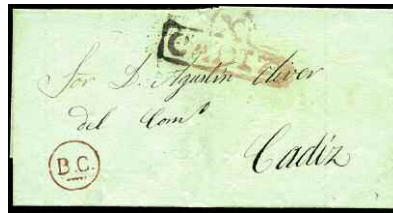 Sor. D. Agustin Oliver
del Comº
Cadiz
B.C.